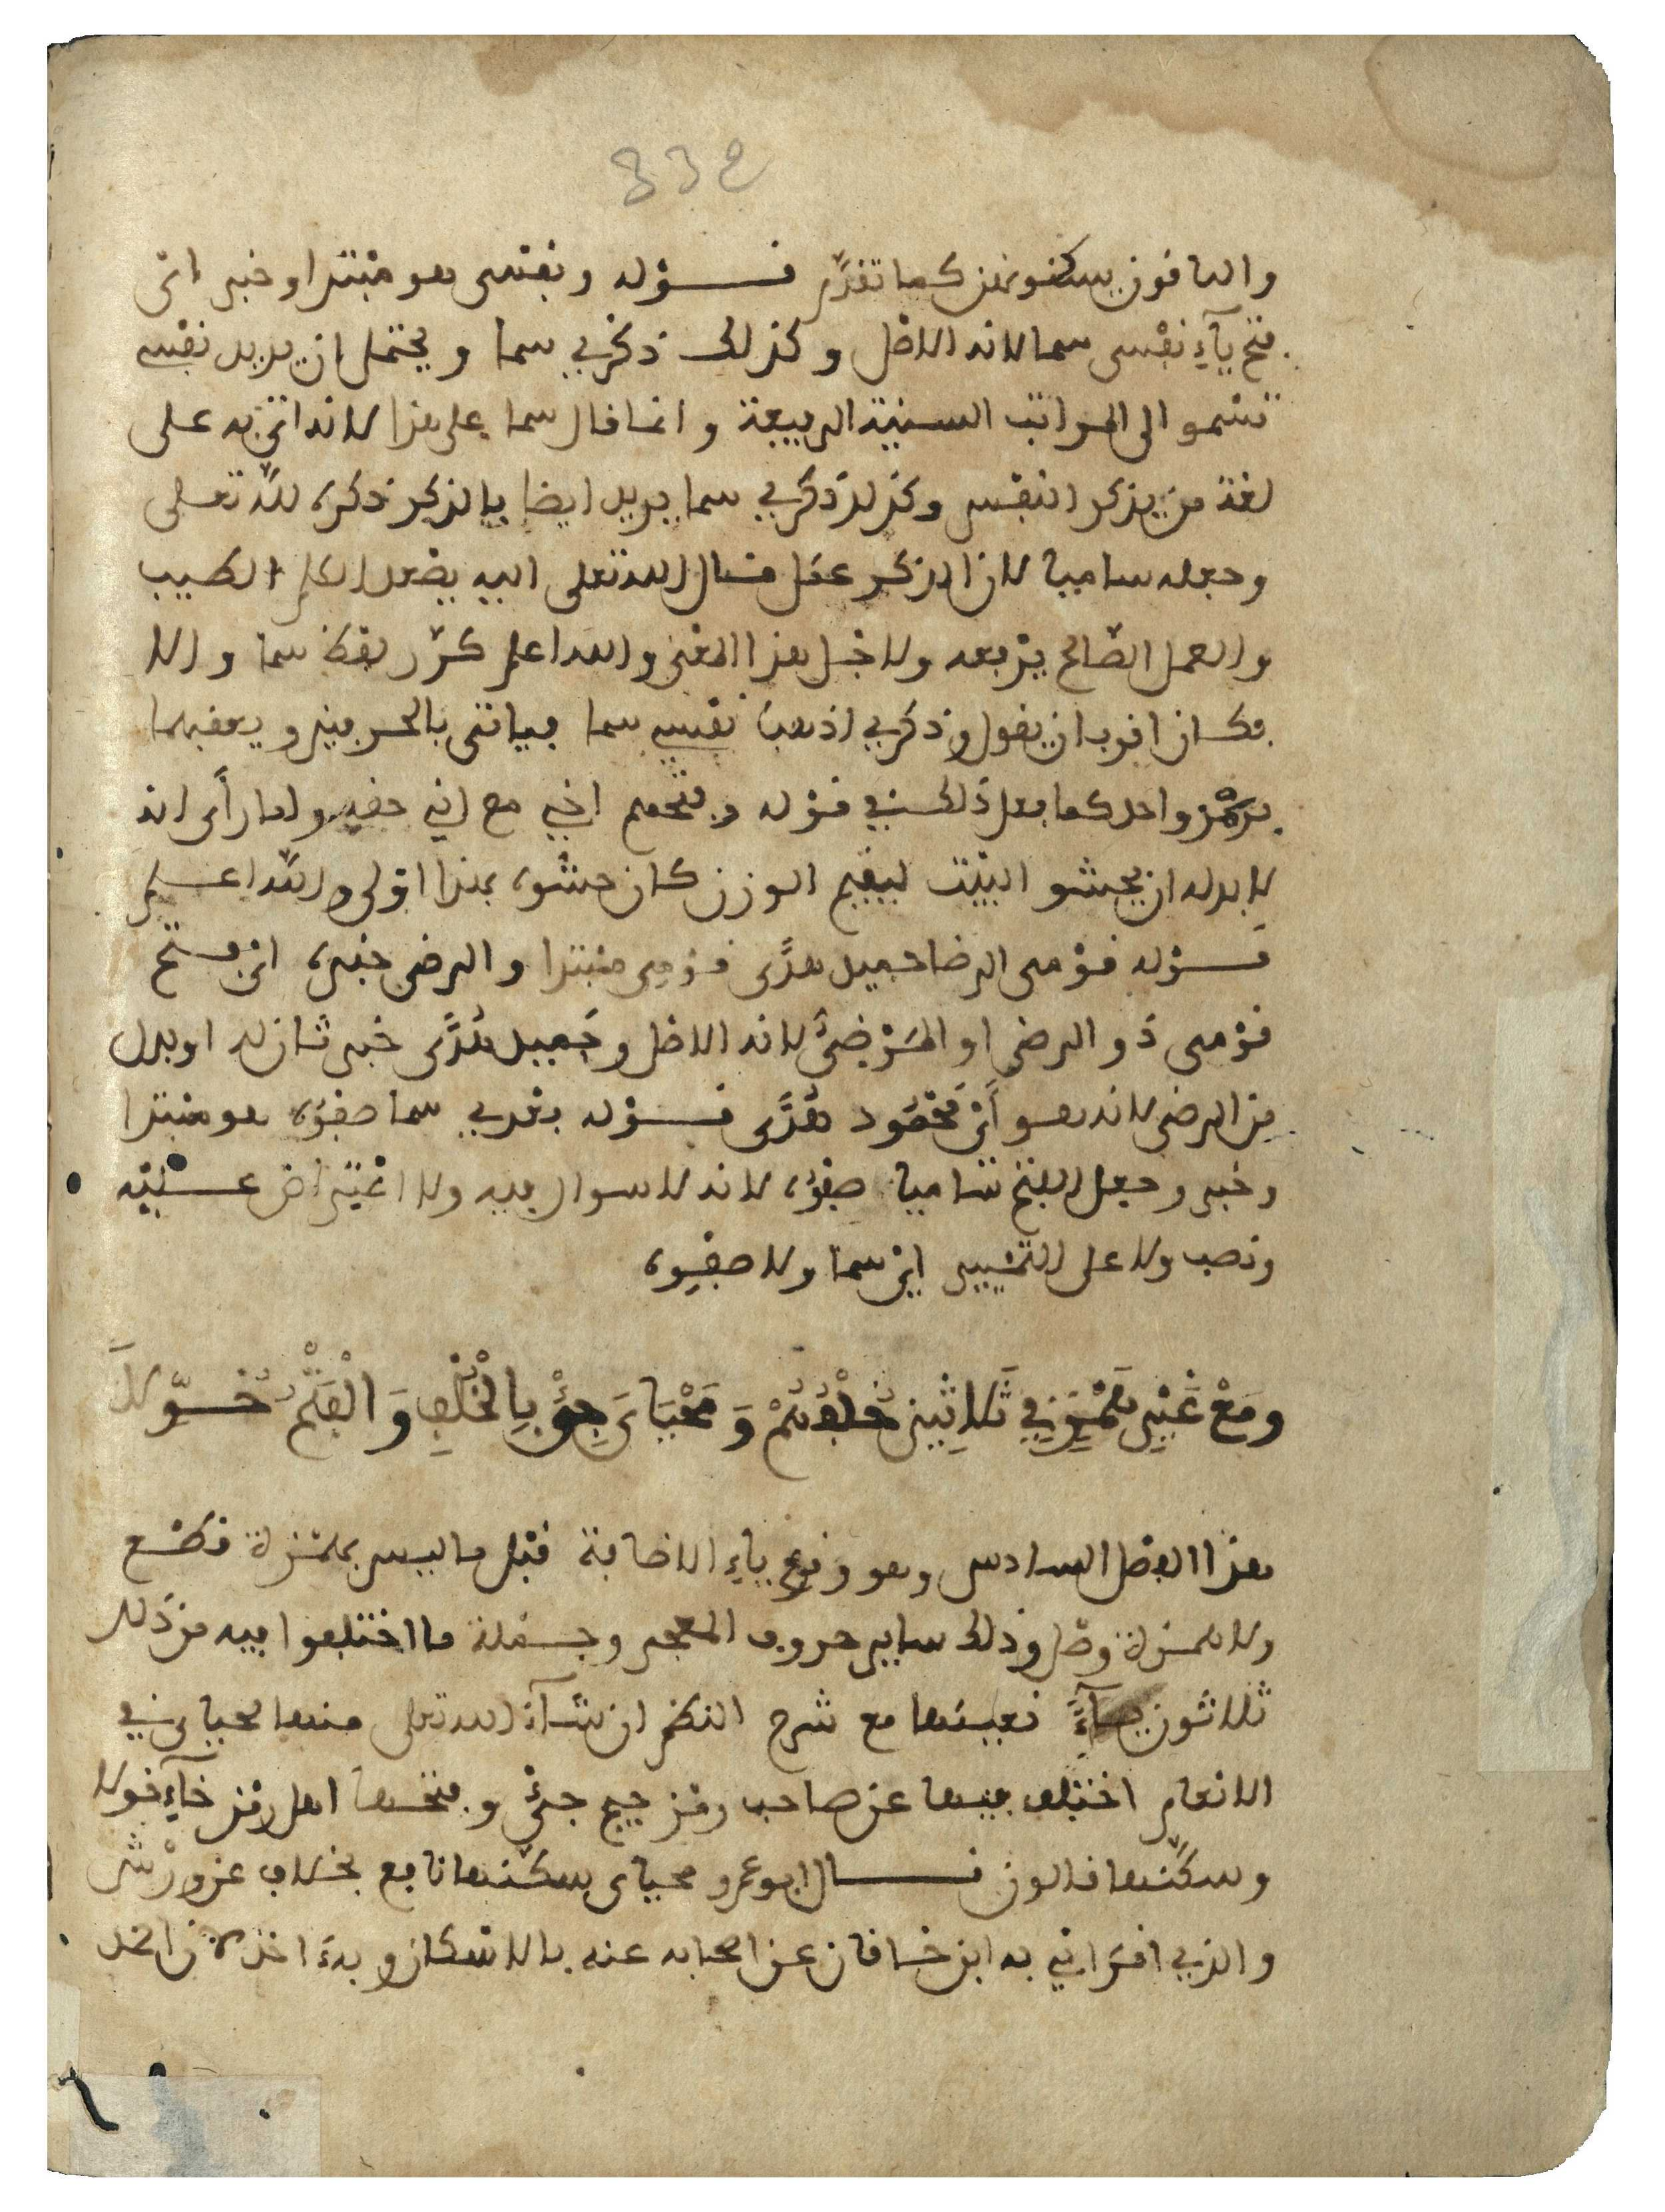 332
والباقون يسكنونهن كما تقدم قوله ونفسى هو مبتدا وخبر اى
فتح ياء نفسى سما لانه الاصل وكذلك ذكرى سما ويحتمل ان يريد نفسى
تسمو الى المراتب السنية الرفيعة وانما قال سما على هذا لانه اتى به على
لغة من يذكر النفس وكذلك ذكرى سما يريد ايضا بالذكر ذكره لله تعلى
وجعله ساميا لان الذكر عمل قال الله تعلى اليه يصعد الكلم الطيب
والعمل الصالح يرفعه ولاجل هذا المعنى والله اعلم كرر لفظ سما والا
فكان اقرب ان يقول وذكرى اذهب نفسى سما فياتى بالحرفين ويعقبهما
برمز واحد كما فعل ذلك في قوله وفتحهم اخى مع انى حقه ولما رأى انه
لا بد له ان يحشو البيت ليقيم الوزن كان حشوه بهذا اولى والله اعلم
قوله قومى الرضا حميد هدًى قومى مبتدا والرضى خبره اى فتح
قومى ذو الرضى او المرضىُّ لانه الاصل وحَميد هُدًى خبر ثان له او بدل
من الرضى لانه هو أى محمُود هُدًى قوله بعدى سما صفوُه هو مبتدا
وخبر وجعل الفتح ساميا صفوُه لانه لا سوال فيه ولا اعتراض عليه
ونصب ولا على التمييز اى سما ولا صفوه
ومَعْ غَيْرِ هَمْزٍ فِي ثَلاثِينَ خُلْفُهُمْ وَمَحْيَاىَ جِئْ بِالْخُلْفِ وَالْفَتْحُ خُوِّلَا
هذا الفصل السادس وهو وقوع ياء الاضافة قبل ما ليس بهمزة قطع
ولا همزة وصل وذلك ساير حروف المعجم وجملة ما اختلفوا فيه من ذلك
ثلاثون ياءً نعينها مع شرح النظم ان شآء الله تعلى منها محياى في
الانعام اختلف فيها عن صاحب رمز جيم جئ وفتحها اهل رمز خآء خولا
وسكّنها قالون قال ابو عمرو محياى سكّنها نافع بخلاف عن ورش
والذى اقرانى به ابن خاقان عن اصحابه عنه بالاسكان وبه اخذ